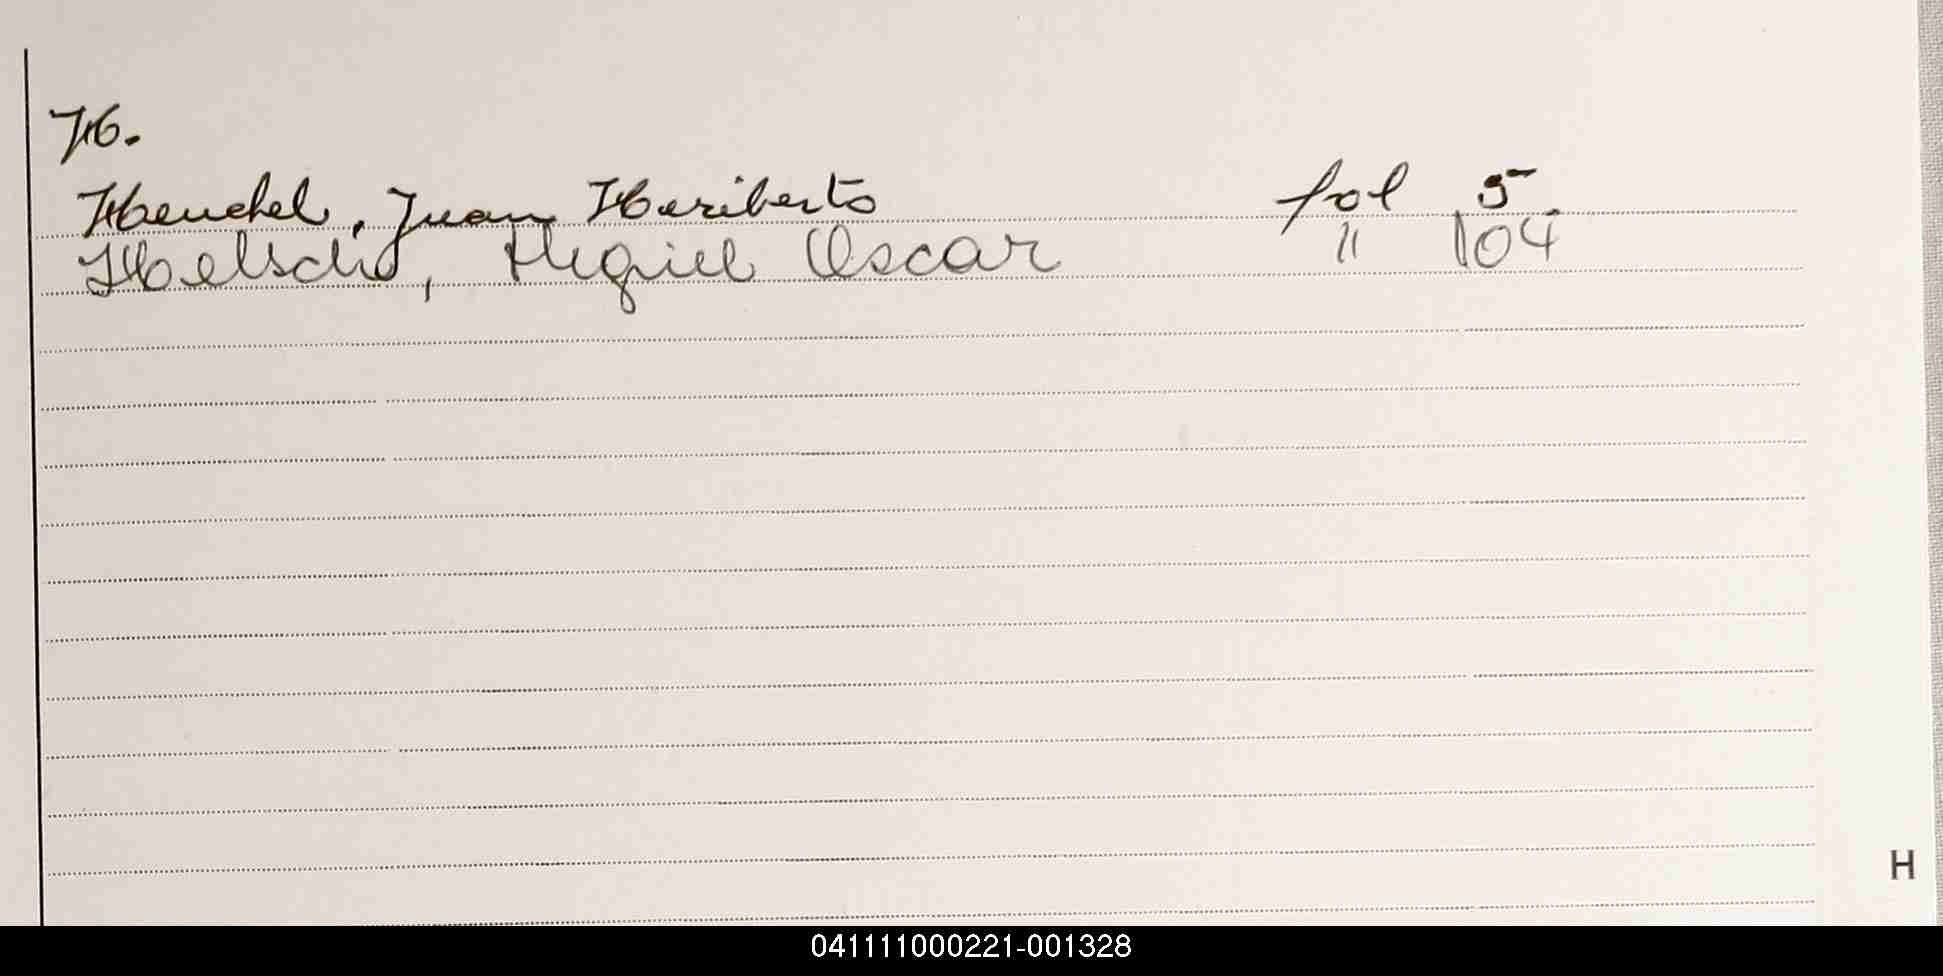 H.
Henchel, Juan Heriberto fol 5
Heltscho, Miguel Oscar " 104
H
041111000221-001328